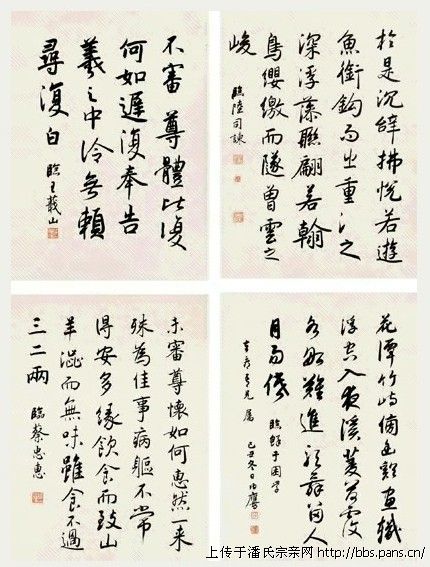 於是沉辭拂悅若遊
魚銜鈎而出重淵之
深浮藻聯翩若翰
鳥纓繳而墜曾雲之
峻
臨陸司諫
不審尊體比復
何如遲復奉告
羲之中冷無賴
尋復白
臨王蕺山
花潭竹嶼傍幽蹊畫檝
浮空入夜溪菱荷覆
水船難進歌舞留人
月易低
臨鮮于困學
己丑冬日
未審尊懷如何惠然一來
殊為佳事病軀不常
得安多緣飲食而致山
羊澁而無味雖食不過
三二兩
臨蔡忠惠
上传于潘氏宗亲网http://bbs.pans.cn/